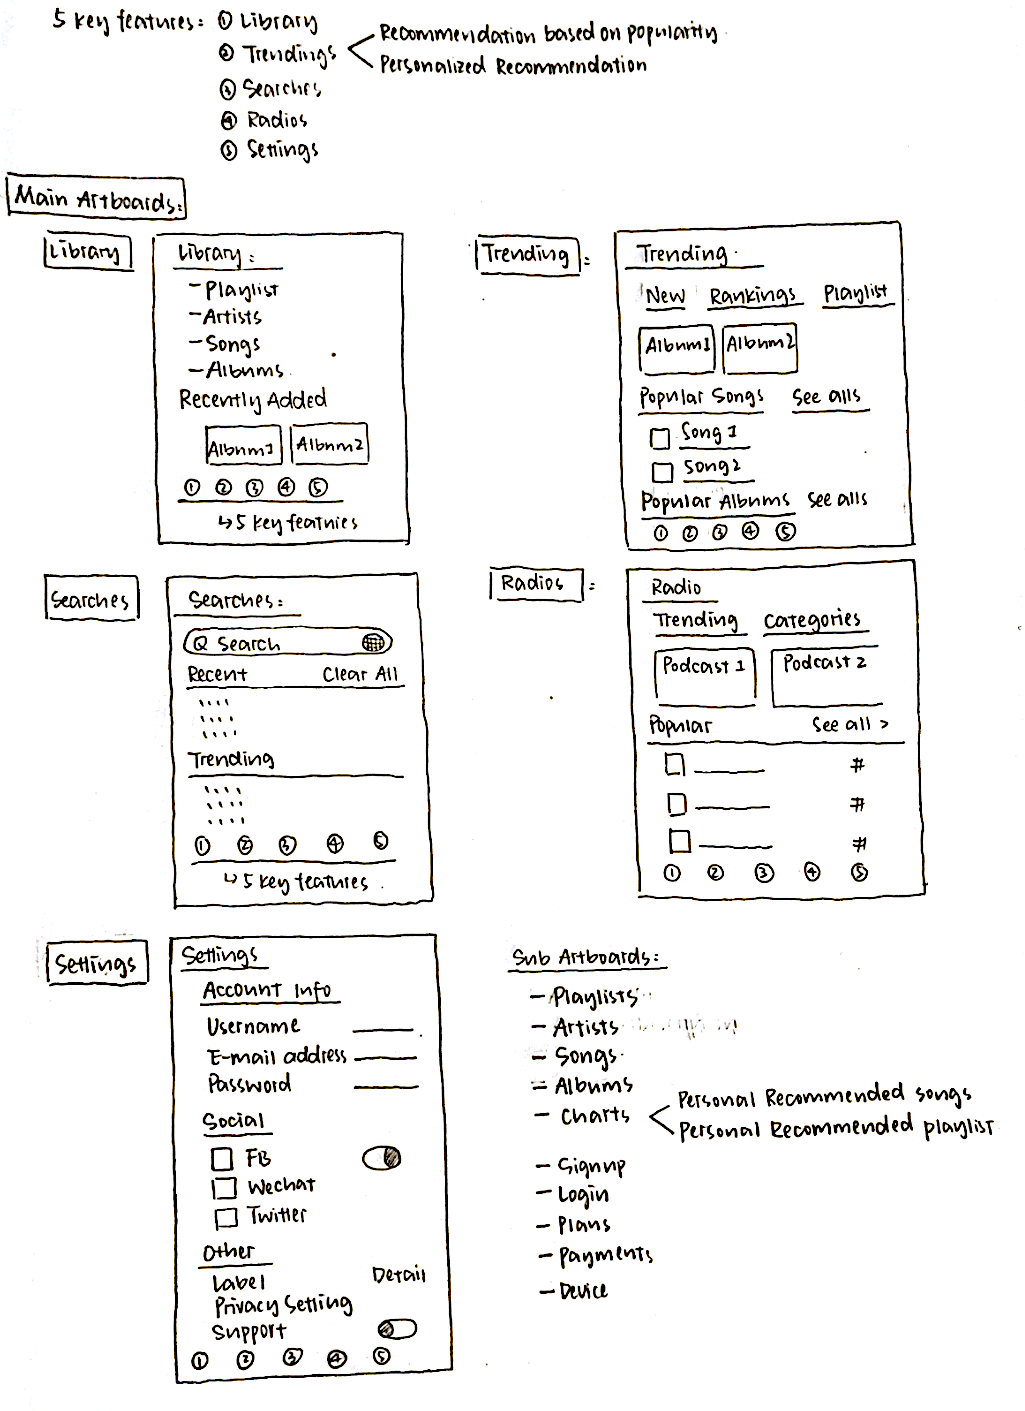 5 key features: ① Library
② Trendings
Recommendation based on popularity
Personalized Recommendation
③ Searches
④ Radios
⑤ Settings
Main Artboards:
Library
Library:
- Playlist
- Artists
- Songs
- Albums
Recently Added
Album1 Album2
① ② ③ ④ ⑤
↳ 5 key features
Trending:
Trending
New Rankings Playlist
Album1 Album2
Popular Songs See alls
Song 1
Song 2
Popular Albums See alls
① ② ③ ④ ⑤
Searches
Searches:
Search
Recent Clear All
Trending
① ② ③ ④ ⑤
↳ 5 key features
Radios:
Radio
Trending Categories
Podcast 1 Podcast 2
Popular See all >
#
#
#
① ② ③ ④ ⑤
Settings
Settings
Account Info
Username
E-mail address
Password
Social
FB
Wechat
Twitter
Other
Label Detail
Privacy Setting
Support
① ② ③ ④ ⑤
Sub Artboards:
- Playlists
- Artists
- Songs
- Albums
- Charts
Personal Recommended songs
Personal Recommended playlist
- Signup
- Login
- Plans
- Payments
- Device